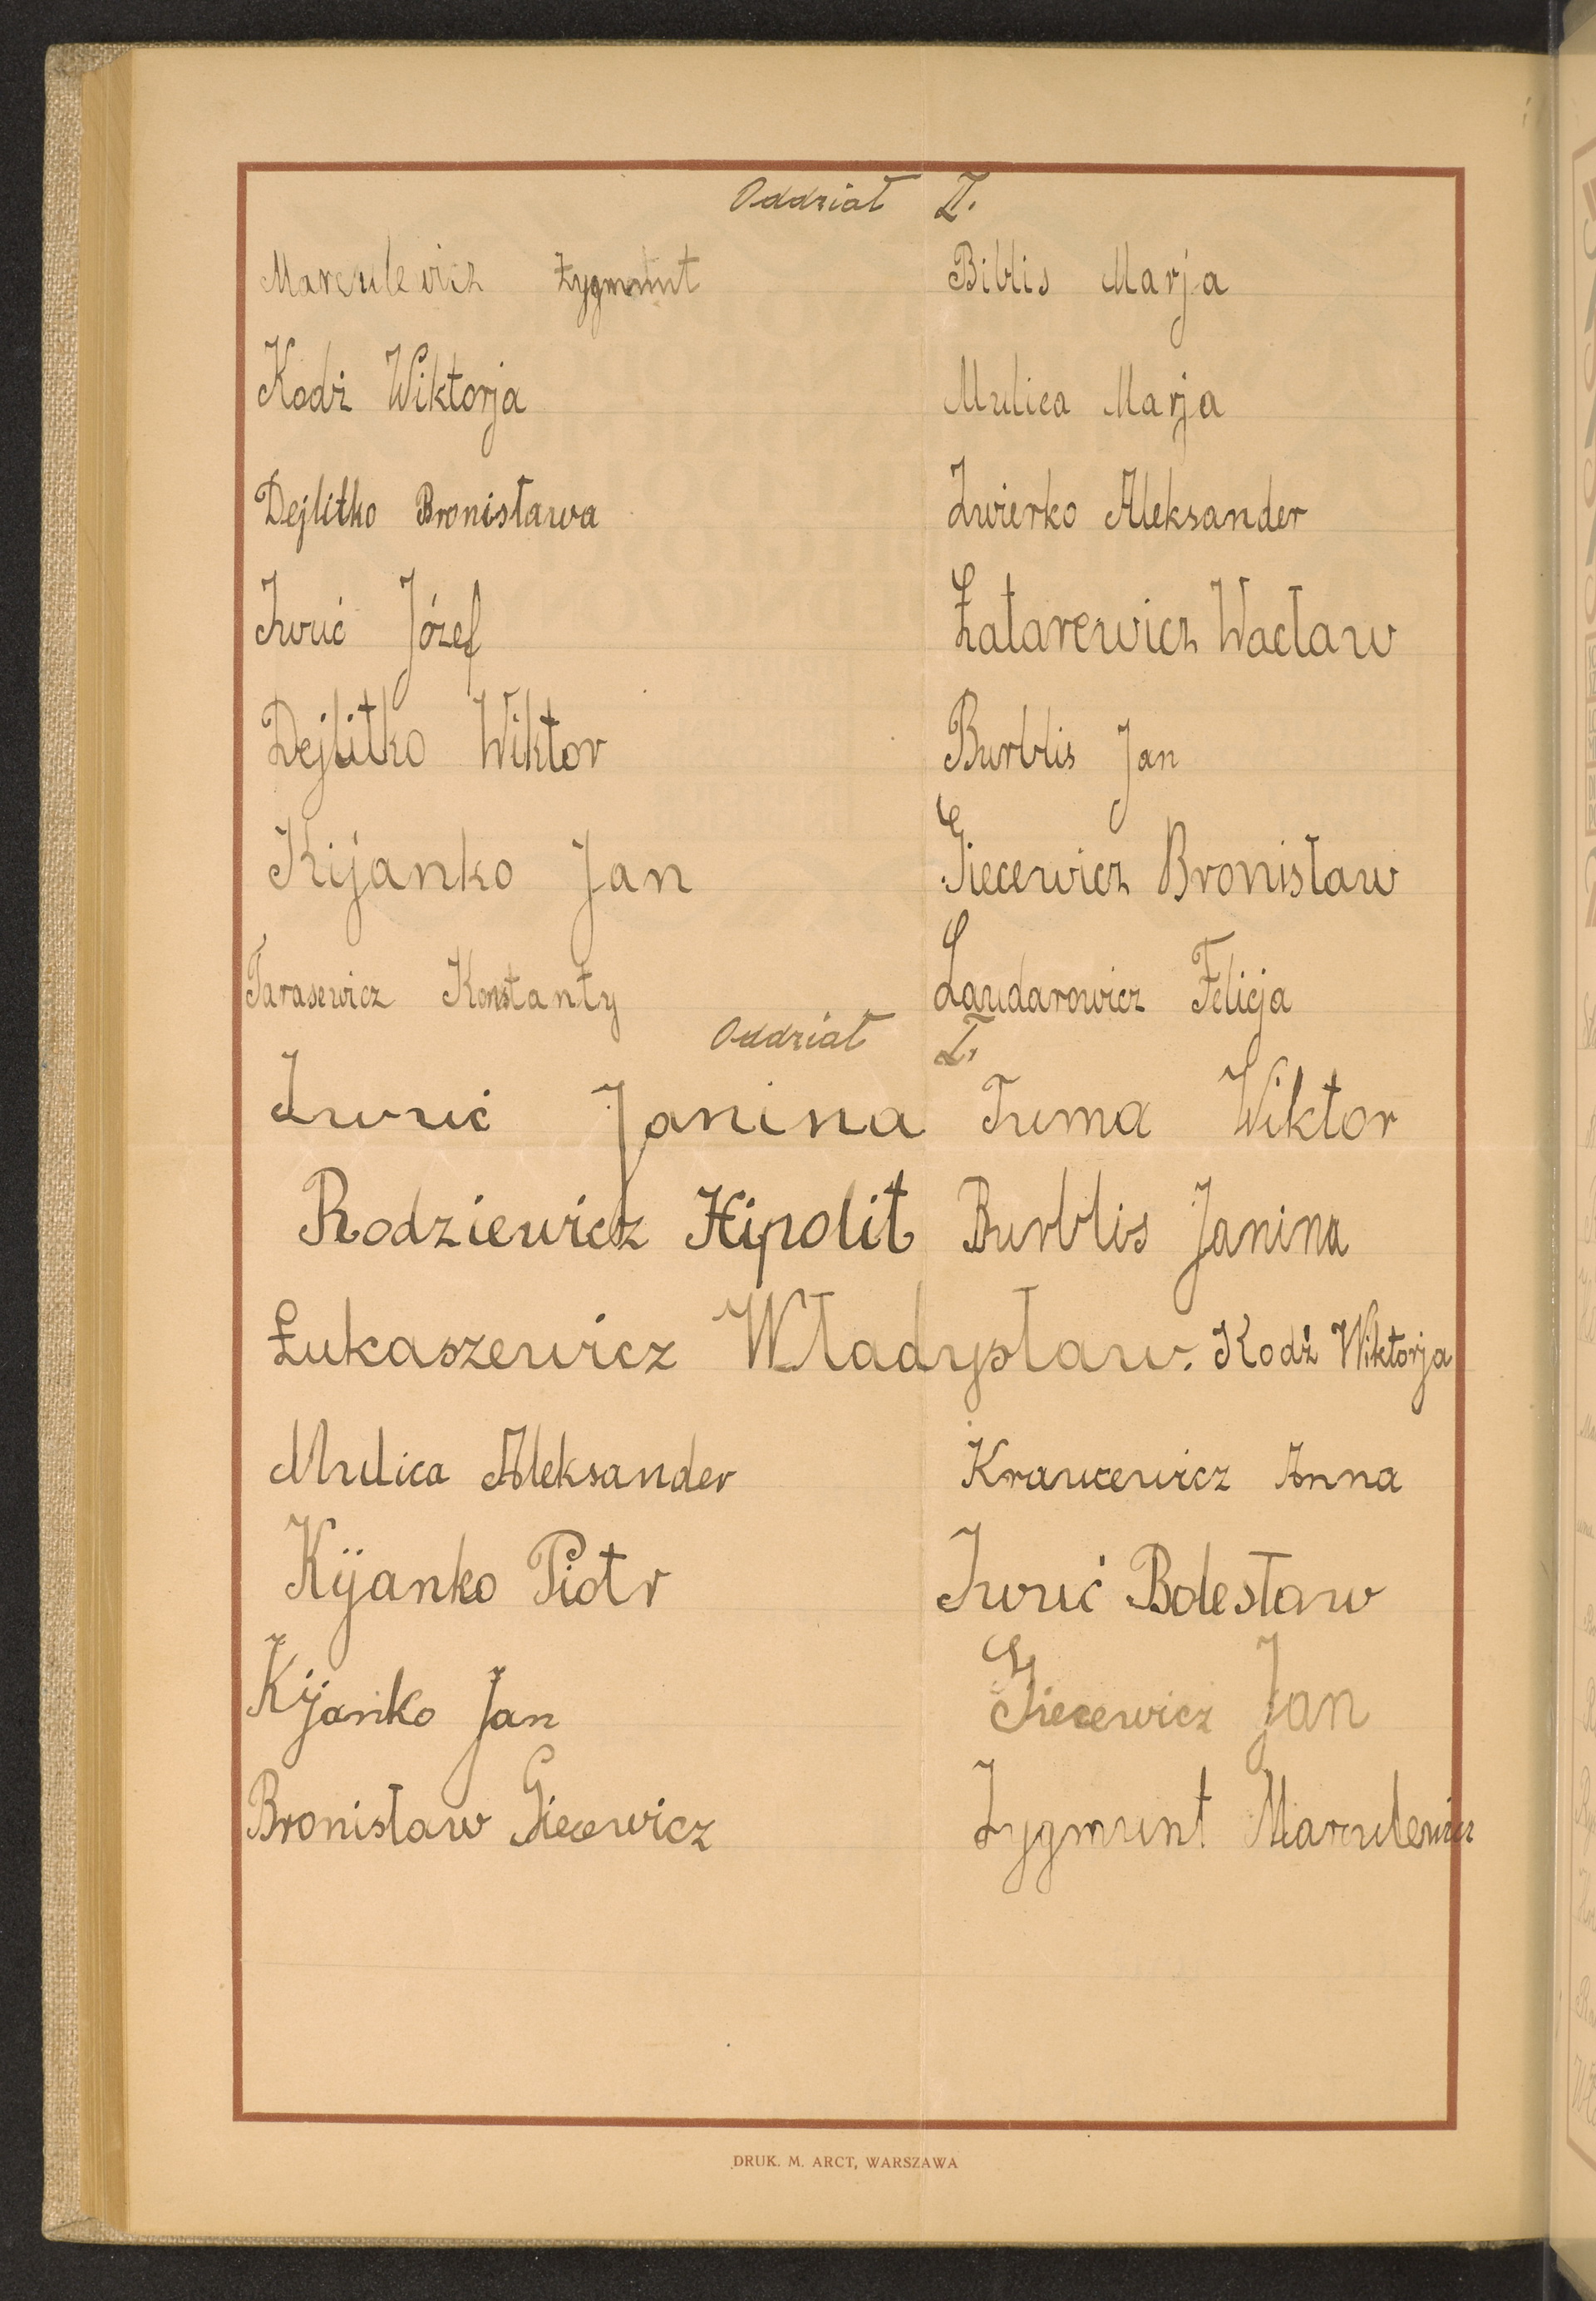 Oddział II.
Marculewicz Zygmunt Biblis Marja
Kodź Wiktorja Mulica Marja
Dejlitko Bronisława Zwierko Aleksander
Iwuć Józef Łatarewicz Wacław
Dejlitko Wiktor Burblis Jan
Kijanko Jan Giecewicz Bronisław
Tarasewicz Konstanty Laudarowicz Felicja
Oddział I.
Iwuć Janina Tuma Wiktor
Rodziewicz Hipolit Burblis Janina
Łukaszewicz Władysław. Kodź Wiktorja
Mulica Aleksander Kraucewicz Anna
Kijanko Piotr Iwuć Bolesław
Kijanko Jan Giecewicz Jan
Bronisław Giecewicz Zygmunt Marculewicz
DRUK. M. ARCT, WARSZAWA